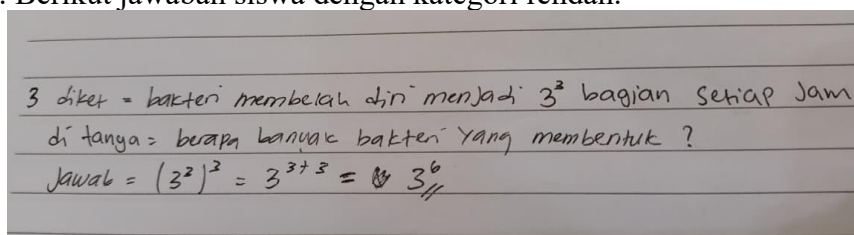 . Berikut jawaban siswa dengan kategori rendah.
3 diket = bakteri membelah diri menjadi 3² bagian setiap jam
di tanya = berapa banyak bakteri yang membentuk ?
Jawab = (3²)³ = 3³⁺³ = 3⁶